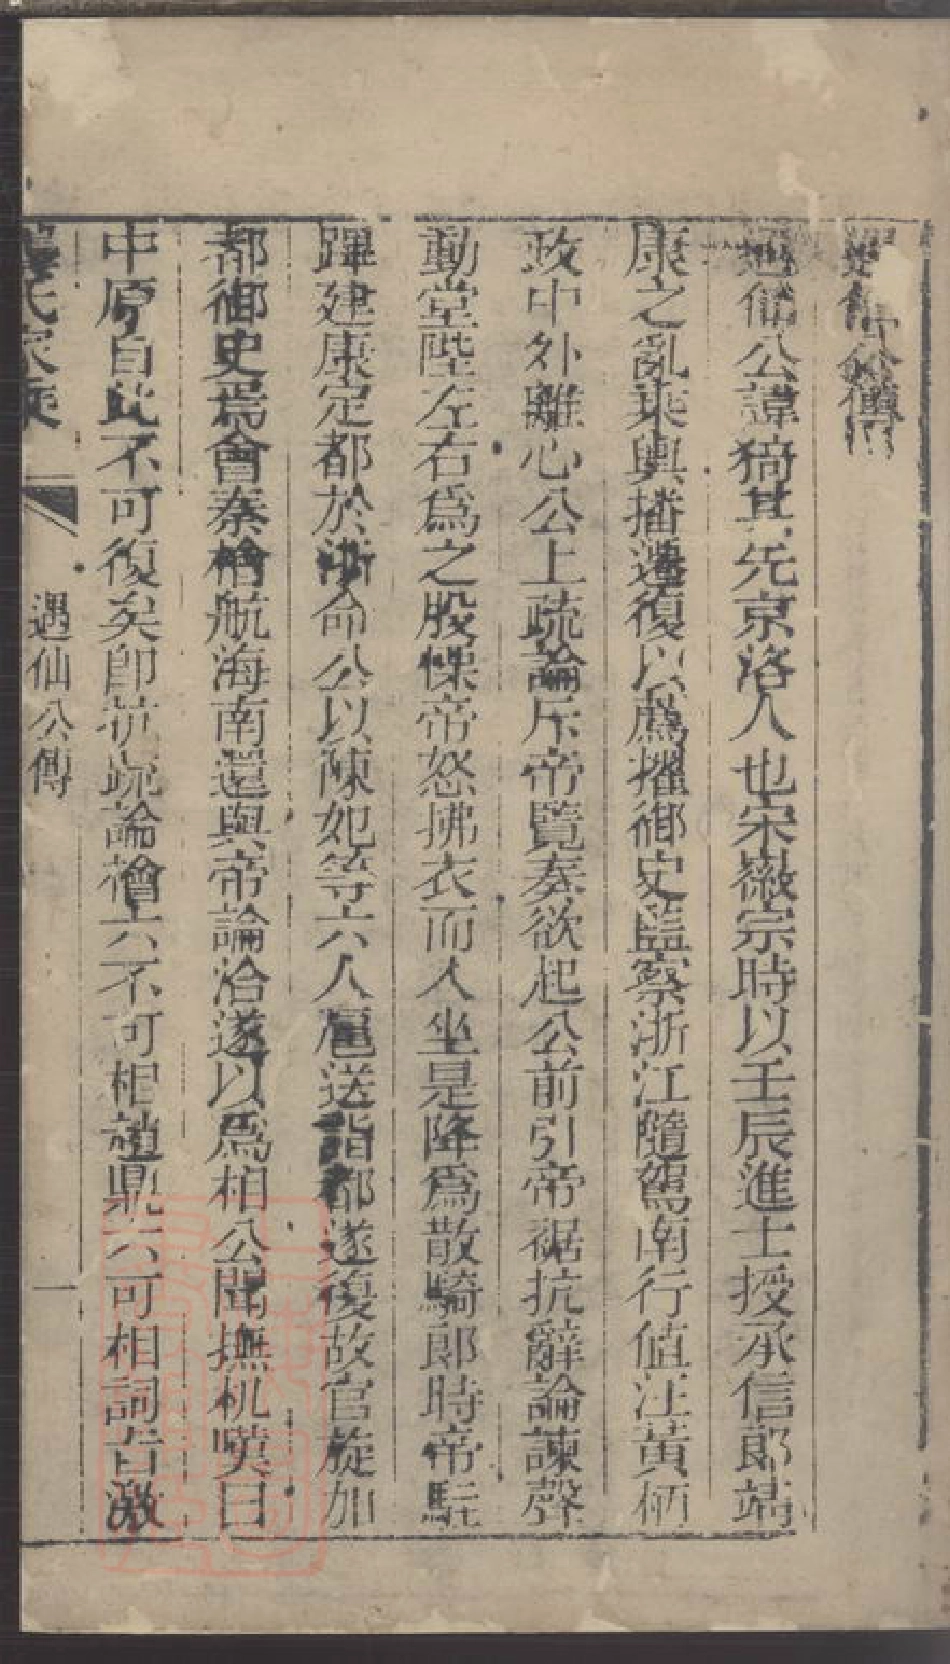 遇仙公傳
遇仙公諱猗其先京洛人也宋徽宗時以壬辰進士授承信郎靖
康之亂乘輿播遷復以薦擢御史監察浙江隨駕南行值汪黃柄
政中外離心公上疏論斥帝覽奏欲起公前引帝裾抗辭論諫聲
動堂陛左右爲之股慄帝怒拂衣而入坐是降爲散騎郎時帝駐
蹕建康定都於浙命公以陳妃等六人扈送詣都遂復故官旋加
都御史焉會秦檜航海南還與帝論洽遂以爲相公聞撫机嘆曰
中原自此不可復矣卽抗疏論檜六不可相趙鼎六可相詞旨激
氏家乘
遇仙公傳
一